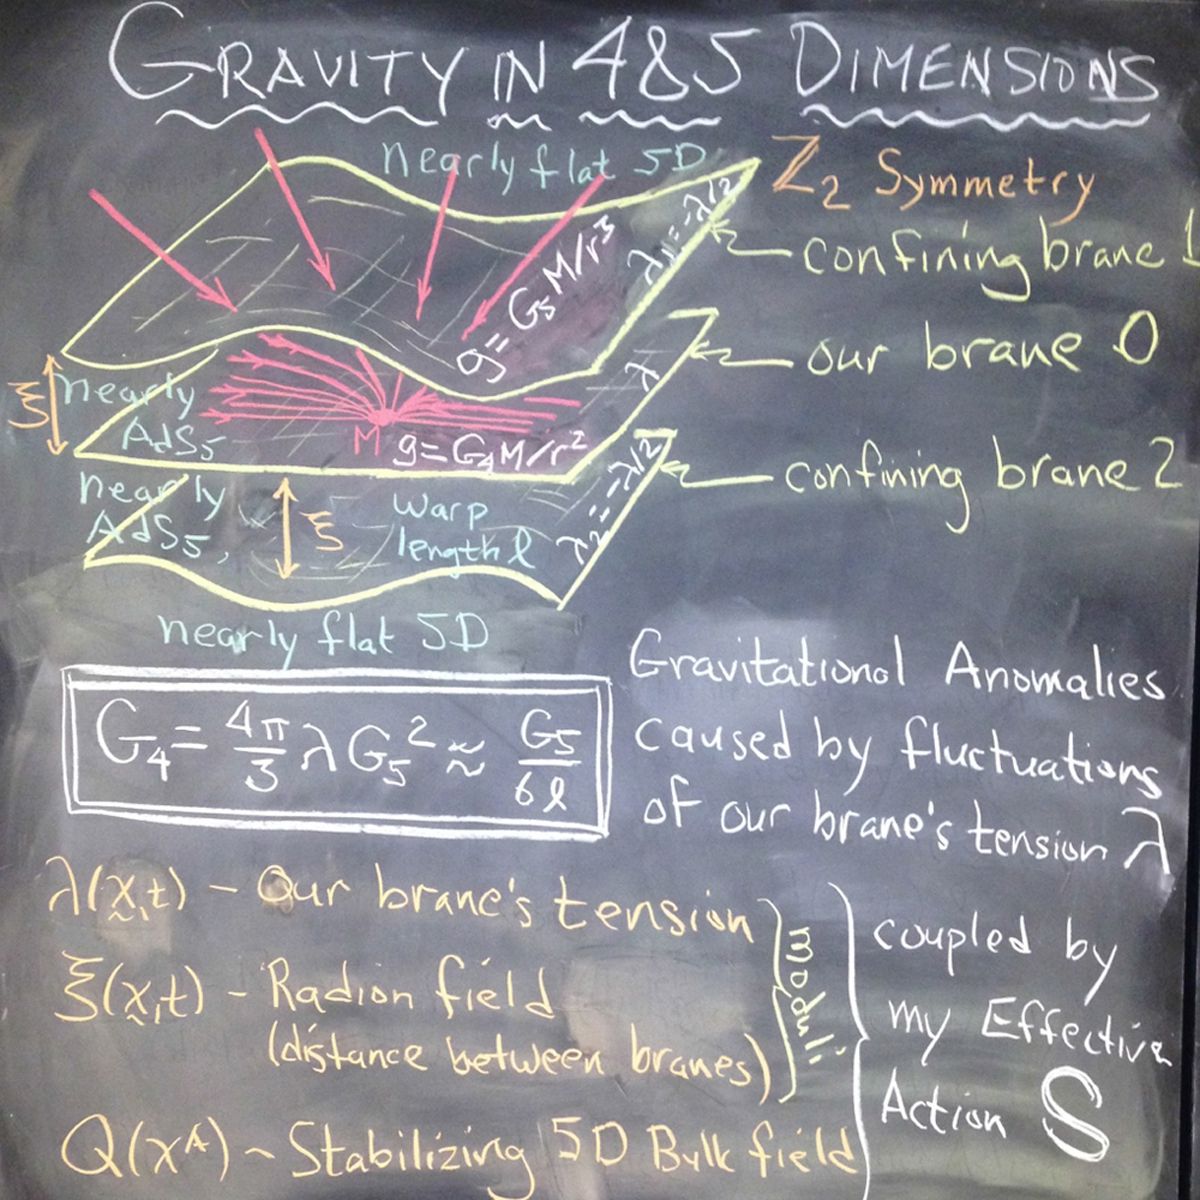 GRAVITY IN 4&5 DIMENSIONS
nearly flat 5D
Z₂ Symmetry
confining brane 1
λ₁=-λ/2
g=G₅M/r³
our brane 0
λ
ξ
nearly
AdS₅
M
g=G₄M/r²
confining brane 2
λ₂=-λ/2
nearly
AdS₅,
ξ
warp
length ℓ
nearly flat 5D
G₄= 4π/3 λG₅² ≈ G₅/6ℓ
Gravitational Anomalies
caused by fluctuations
of our brane's tension λ
λ(x,t) – Our brane's tension
ξ(x,t) – Radion field
(distance between branes)
moduli
Q(xᴬ) ~ Stabilizing 5D Bulk field
coupled by
my Effective
Action S